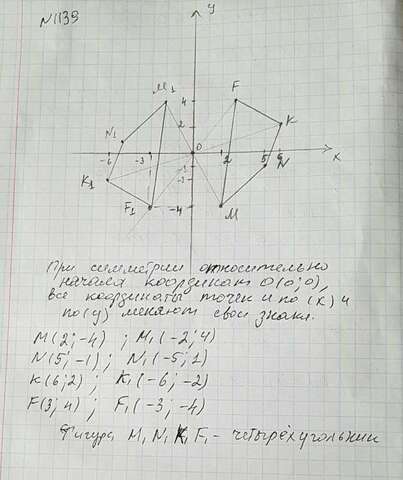 N1139
y
M1
F
4
2
K
N1
-6
-3
0
2
5
6
x
N
K1
F1
M
-4
При симметрии относительно
начала координат O(0; 0),
все координаты точек и по (x) и
по (y) меняют свои знаки.
M(2; -4) ; M1(-2; 4)
N(5; -1) ; N1(-5; 1)
K(6; 2) ; K1(-6; -2)
F(3; 4) ; F1(-3; -4)
Фигура M1 N1 K1 F1 - четырёхугольник